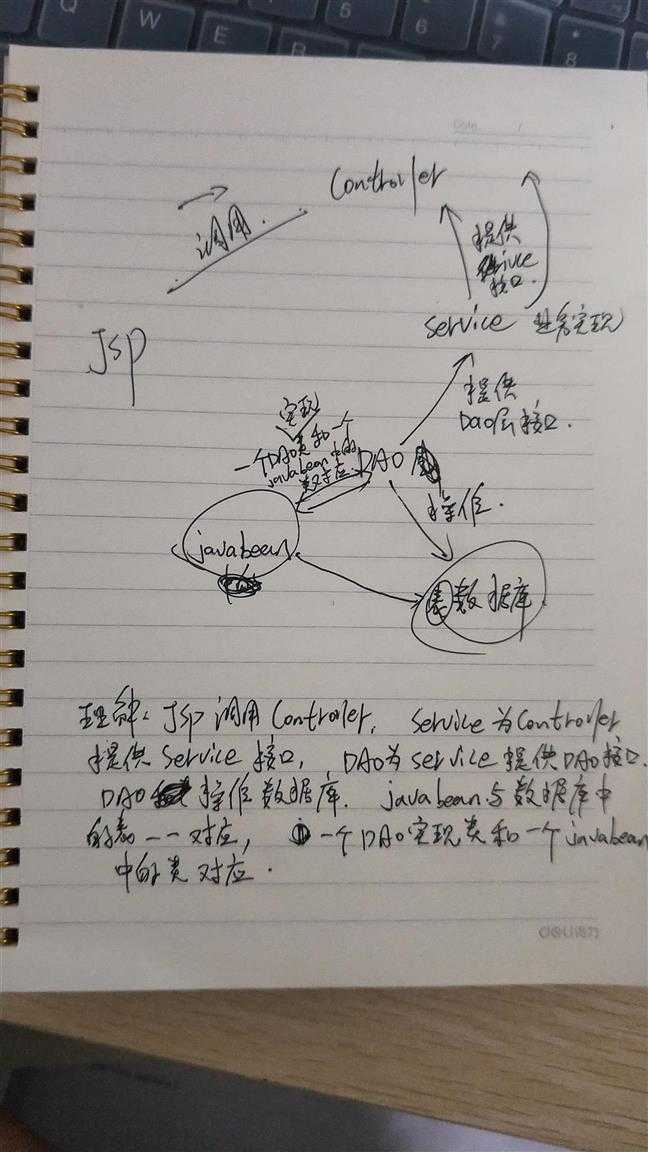 Q W E R 5 6 & 7 * 8
Date /
Controller
调用.
提供
service
接口.
Jsp
service 业务实现
提供
Dao层接口.
实现
一个DAO类和一个
javabean中的
类对应
DAO
操作.
javabean
数据库
理解: Jsp 调用 Controller, service为Controller
提供 Service 接口, DAO为service提供DAO接口.
DAO 操作数据库. javabean与数据库中
的表一一对应, 一个DAO实现类和一个javabean
中的类对应.